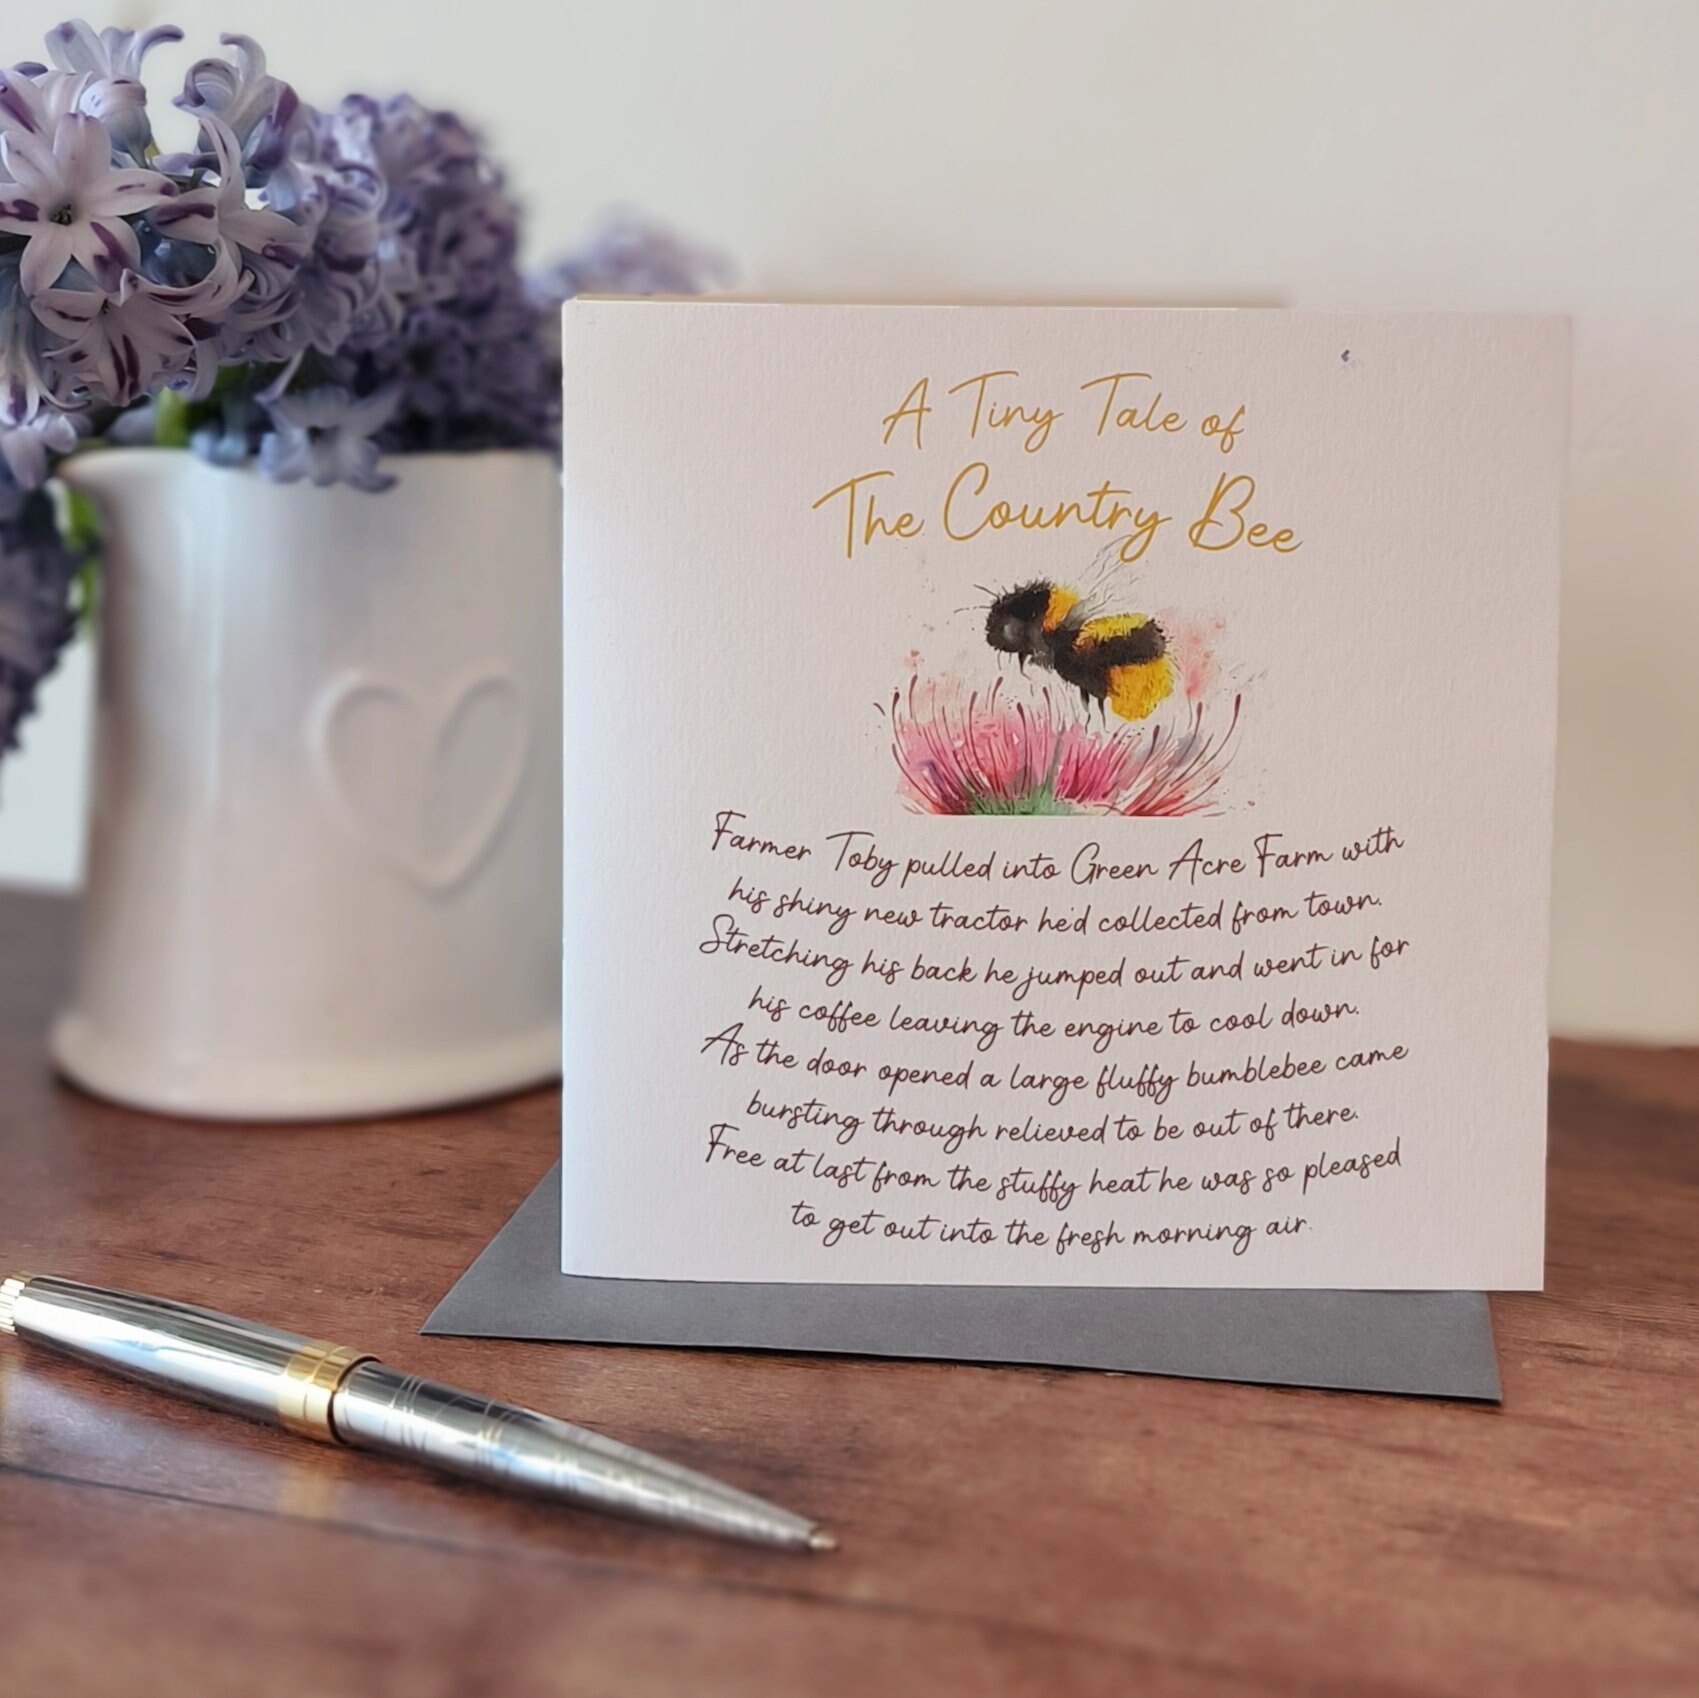 A Tiny Tale of
The Country Bee
Farmer Toby pulled into Green Acre Farm with
his shiny new tractor he'd collected from town.
Stretching his back he jumped out and went in for
his coffee leaving the engine to cool down.
As the door opened a large fluffy bumblebee came
bursting through relieved to be out of there.
Free at last from the stuffy heat he was so pleased
to get out into the fresh morning air.